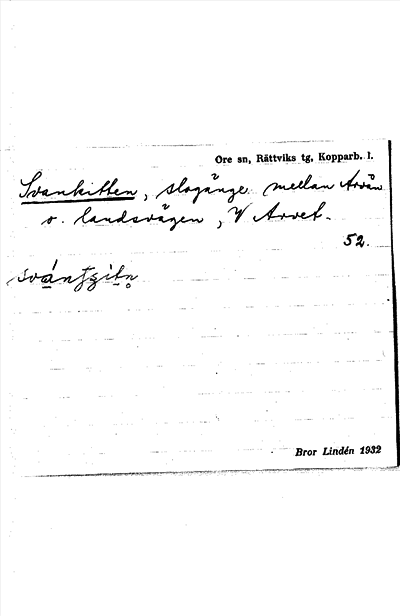 Ore sn, Rättviks tg, Kopparb. l.
Svankitten, slogänge mellan Arvån
o. landsvägen, V Arvet.
52.
Bror Lindén 1932